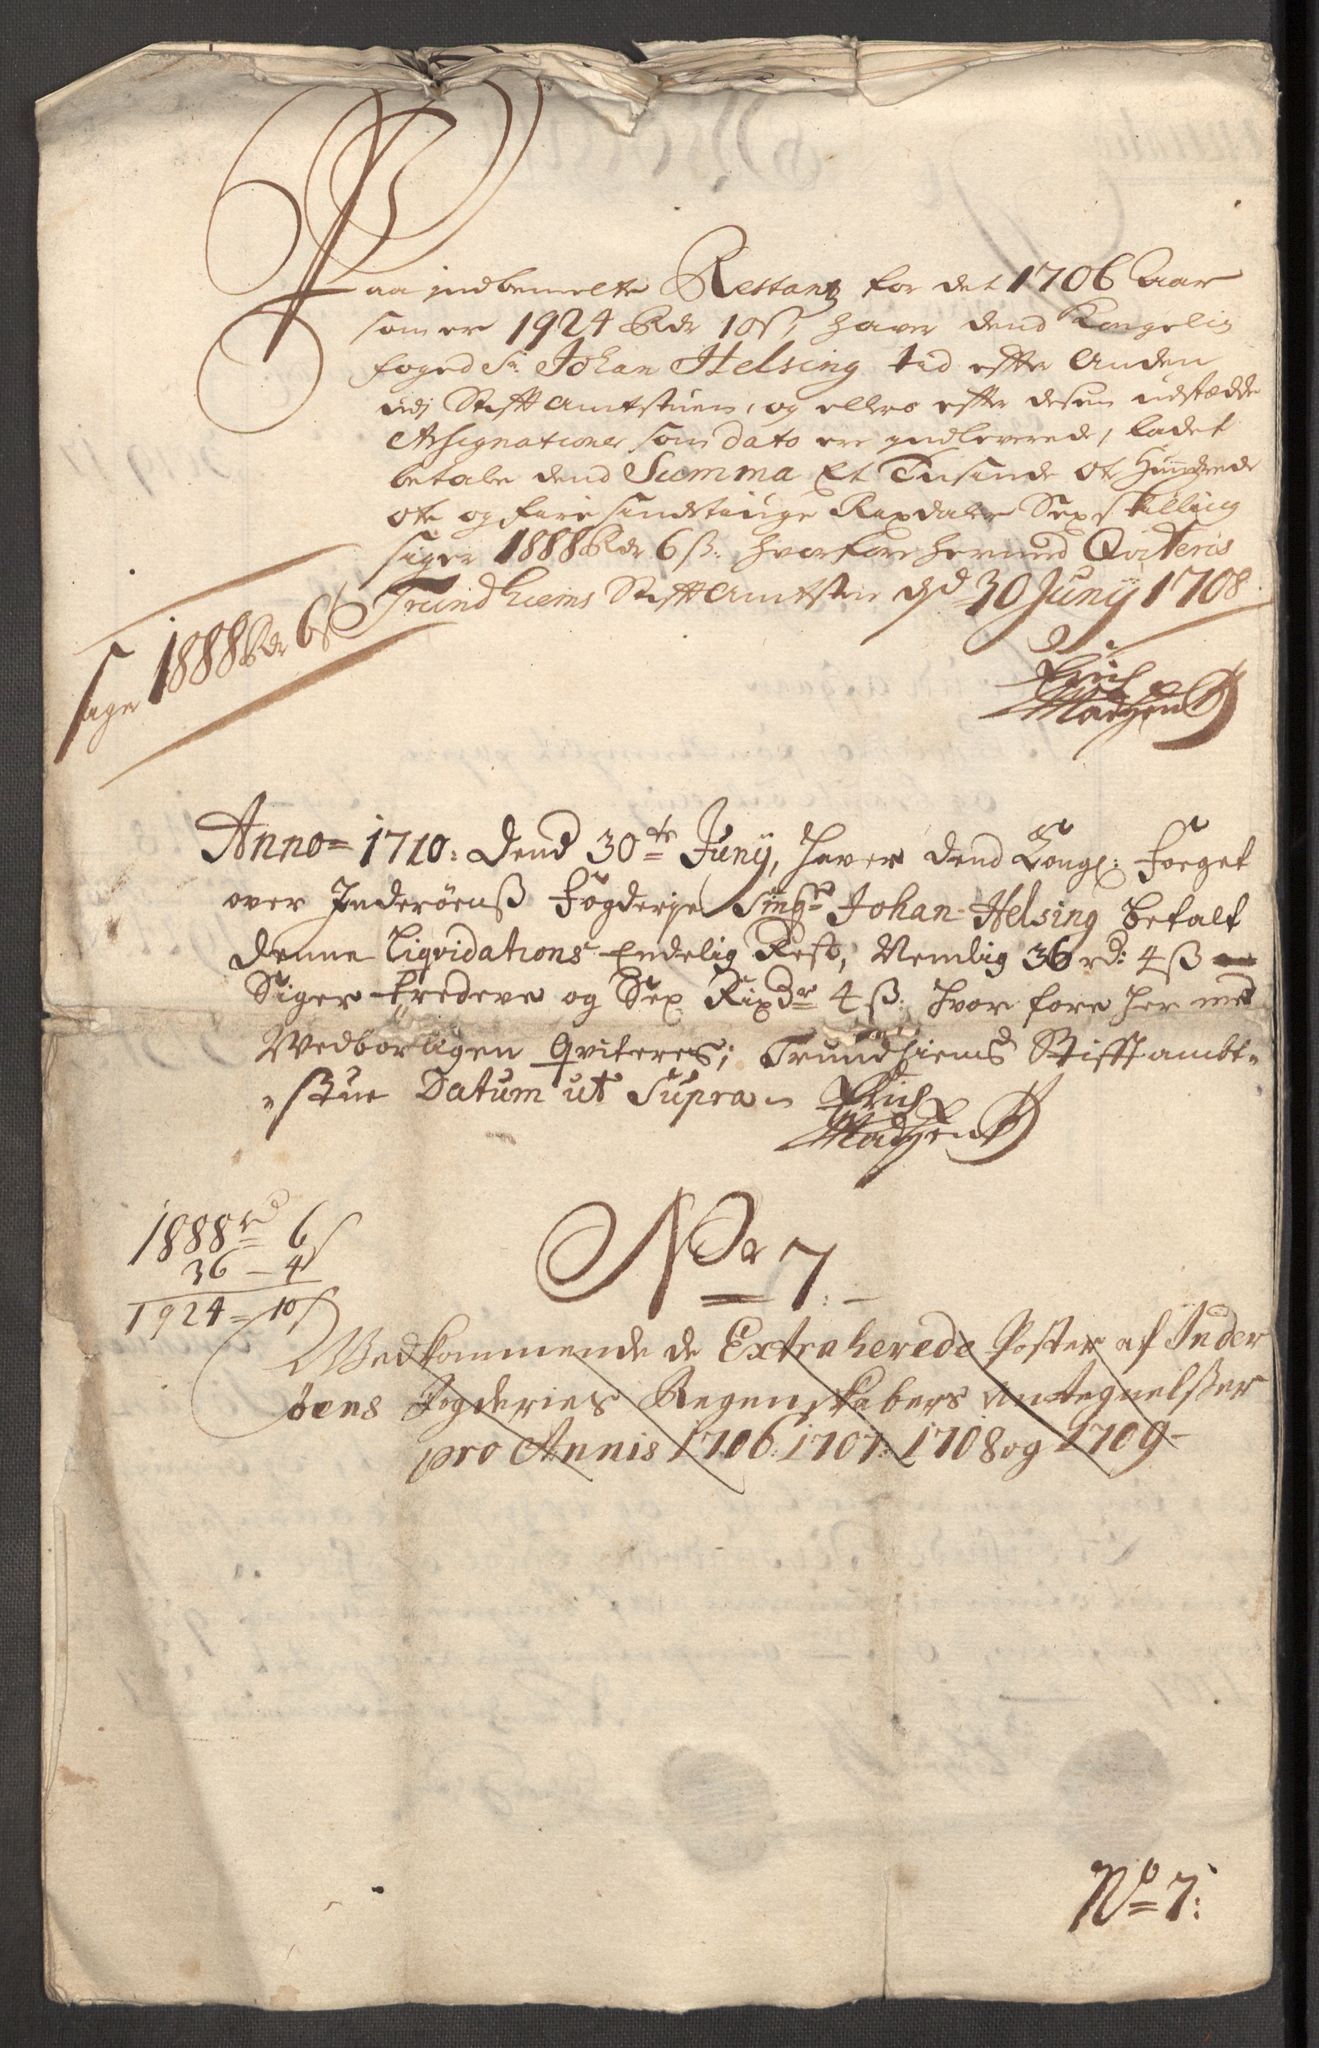 Paa indbemelte Restantz for det 1706 Aar
som er 1924 Rdr 10ß, haver dend Kongelig
foged Sr Johan Helsing tid efter Anden
udj Stiftamtstuen, og ellers efter desen udstædde
Assignationer som dato ere indleverede, ladet
betale dend Summa Et Tusinde ote Hundrede
ote og fire sindstiuge Rixdaler Sex skilling
siger 1888 Rdr 6ß: hvorfore hermed Qviteris
Trundhiems Stiftamtstue d 30 Junij 1708
Siger 1888 Rdr 6ß
Erich
Madtzen
Anno= 1710: Dend 30te Junij, haver dend Kongl: Foeget
over Inderøens Fogderje Singr Johan Helsing betalt
denne Liqvidations Endelig Rest, Nemlig 36 rd: 4ß
Siger tredeve og Sex Rixdr 4ß: hvor fore her med
Vedborligen Qviteres; Trundhiems Stifftambt=
=stue Datum ut Supra
Erich
Madtzen
1888 rd 6ß
36 – 4
1924 = 10ß
No 7:
Vedkommende de Extraherede Poster af Inder
öens Fogderies Regenskabers Antegnelsser
pro Annis 1706: 1707: 1708 og 1709
No 7: